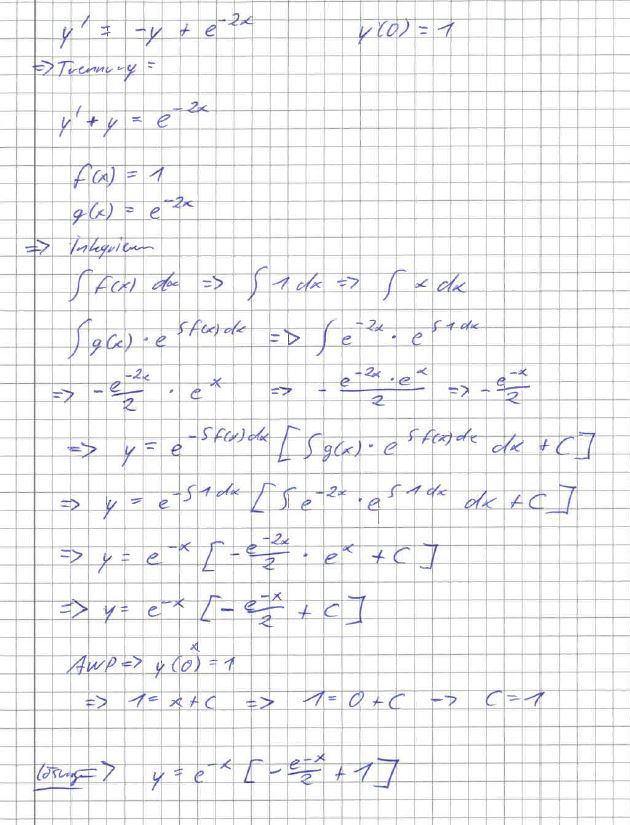 y' = -y + e^{-2x}    y(0) = 1
=> Trennung =
y' + y = e^{-2x}
f(x) = 1
g(x) = e^{-2x}
=> Integrieren
∫ f(x) dx => ∫ 1 dx => ∫ x dx
∫ g(x) · e^{∫f(x)dx} => ∫ e^{-2x} · e^{∫1dx}
=> -\frac{e^{-2x}}{2} · e^x => -\frac{e^{-2x} · e^x}{2} => -\frac{e^{-x}}{2}
=> y = e^{-∫f(x)dx} [ ∫g(x) · e^{∫f(x)dx} dx + C ]
=> y = e^{-∫1dx} [ ∫e^{-2x} · e^{∫1dx} dx + C ]
=> y = e^{-x} [ -\frac{e^{-2x}}{2} · e^x + C ]
=> y = e^{-x} [ -\frac{e^{-x}}{2} + C ]
x
AWP => y(0) = 1
=> 1 = x + C => 1 = 0 + C -> C = 1
Lösung => y = e^{-x} [ -\frac{e^{-x}}{2} + 1 ]